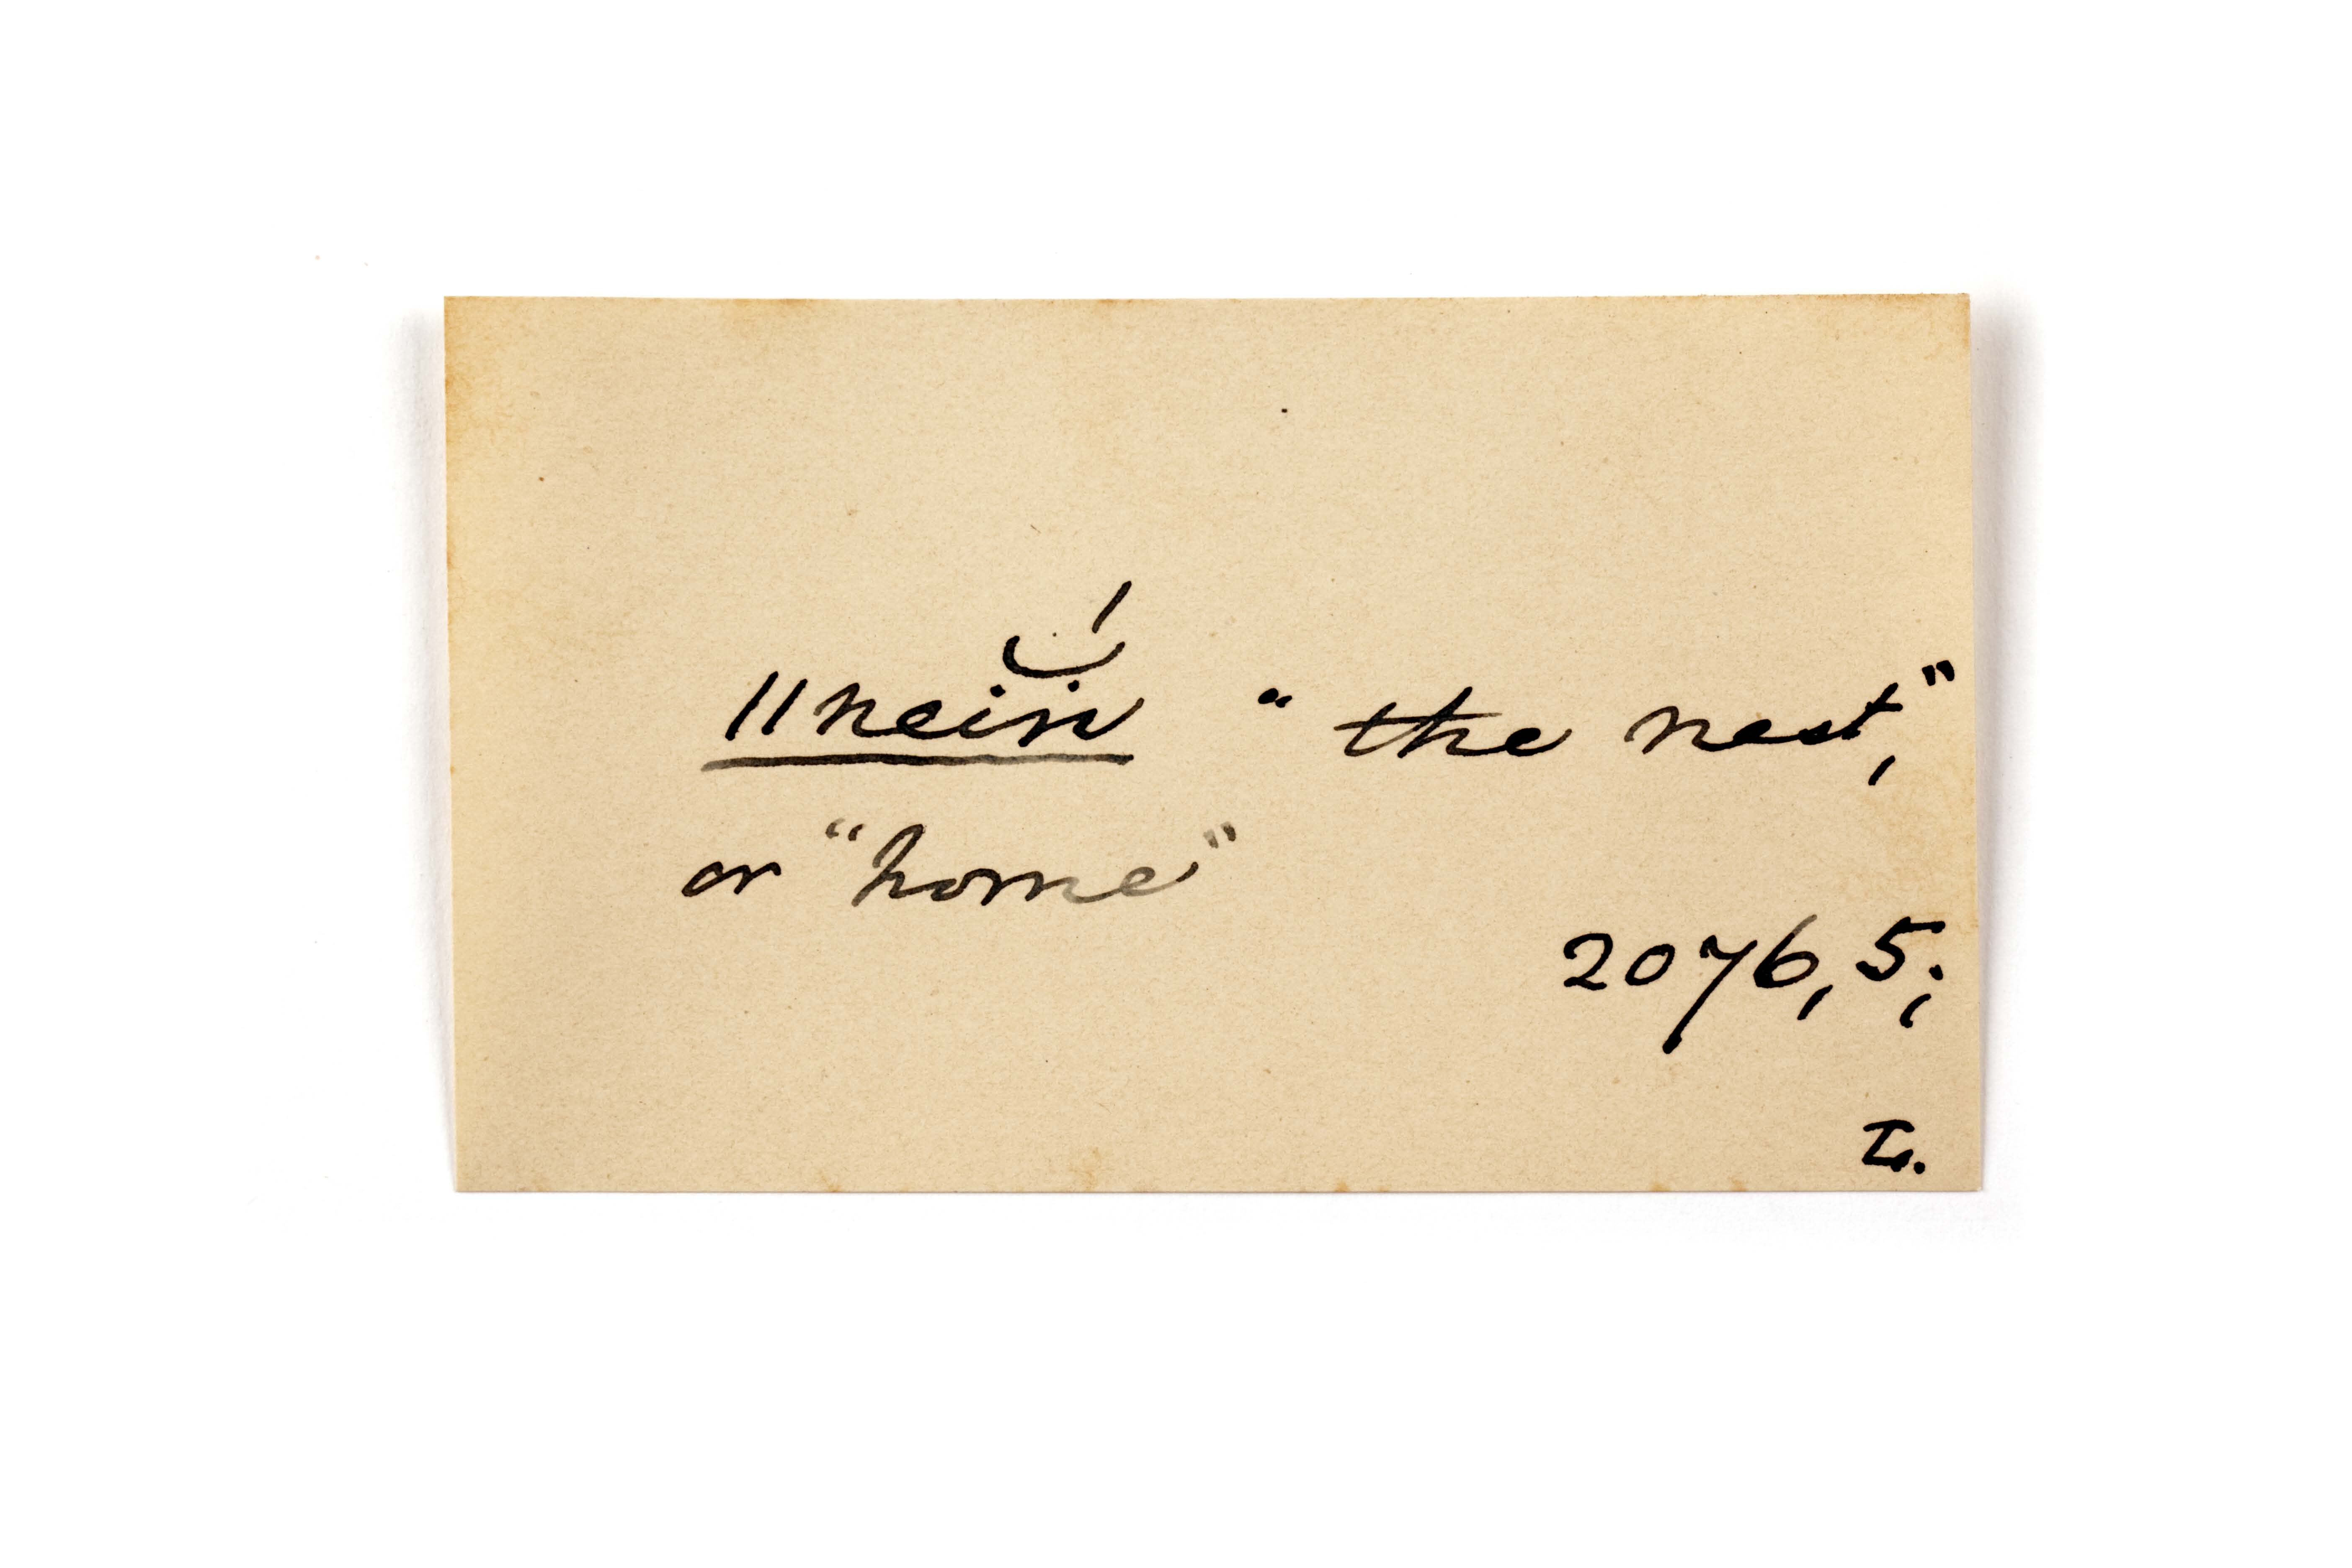 ǁneiṅ "the nest,"
or "home"
2076, 5;
L.